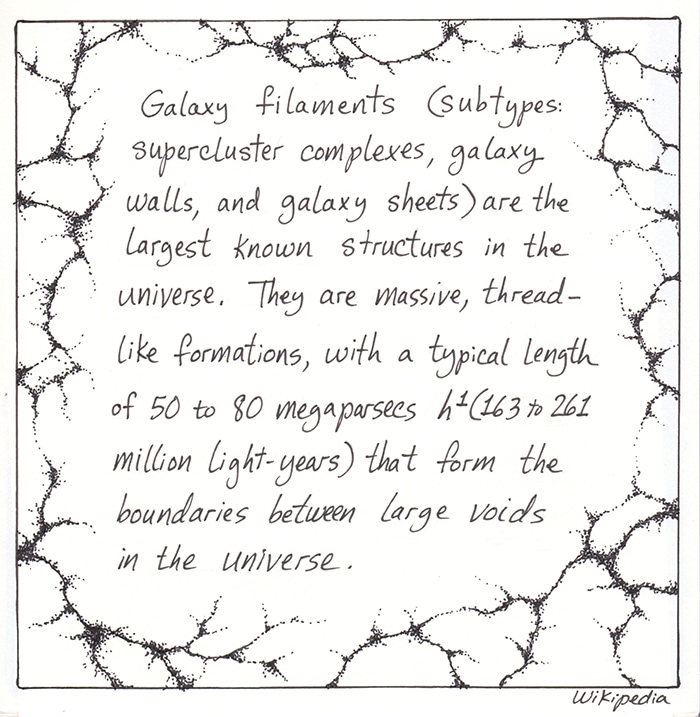 Galaxy filaments (subtypes:
supercluster complexes, galaxy
walls, and galaxy sheets) are the
largest known structures in the
universe. They are massive, thread-
like formations, with a typical length
of 50 to 80 megaparsecs h⁻¹ (163 to 261
million light-years) that form the
boundaries between large voids
in the universe.
Wikipedia